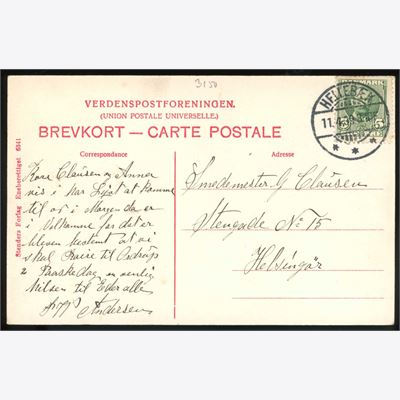 3150
VERDENSPOSTFORENINGEN.
(UNION POSTALE UNIVERSELLE.)
BREVKORT — CARTE POSTALE
Correspondance
Adresse
Stenders Forlag Eneberettiget 6341
HELLEBÆK
11.4.
5
Kære Clausen og Anner
vis i har Lyst at komme
til os i Morgen da er
i Velkomne for det er
bleven bestemt at vi
skal
2 Paaskedag en venlig
Hilsen til Eder alle
Andersen
Smedemester G Clausen
Stengade No 75
Helsingør